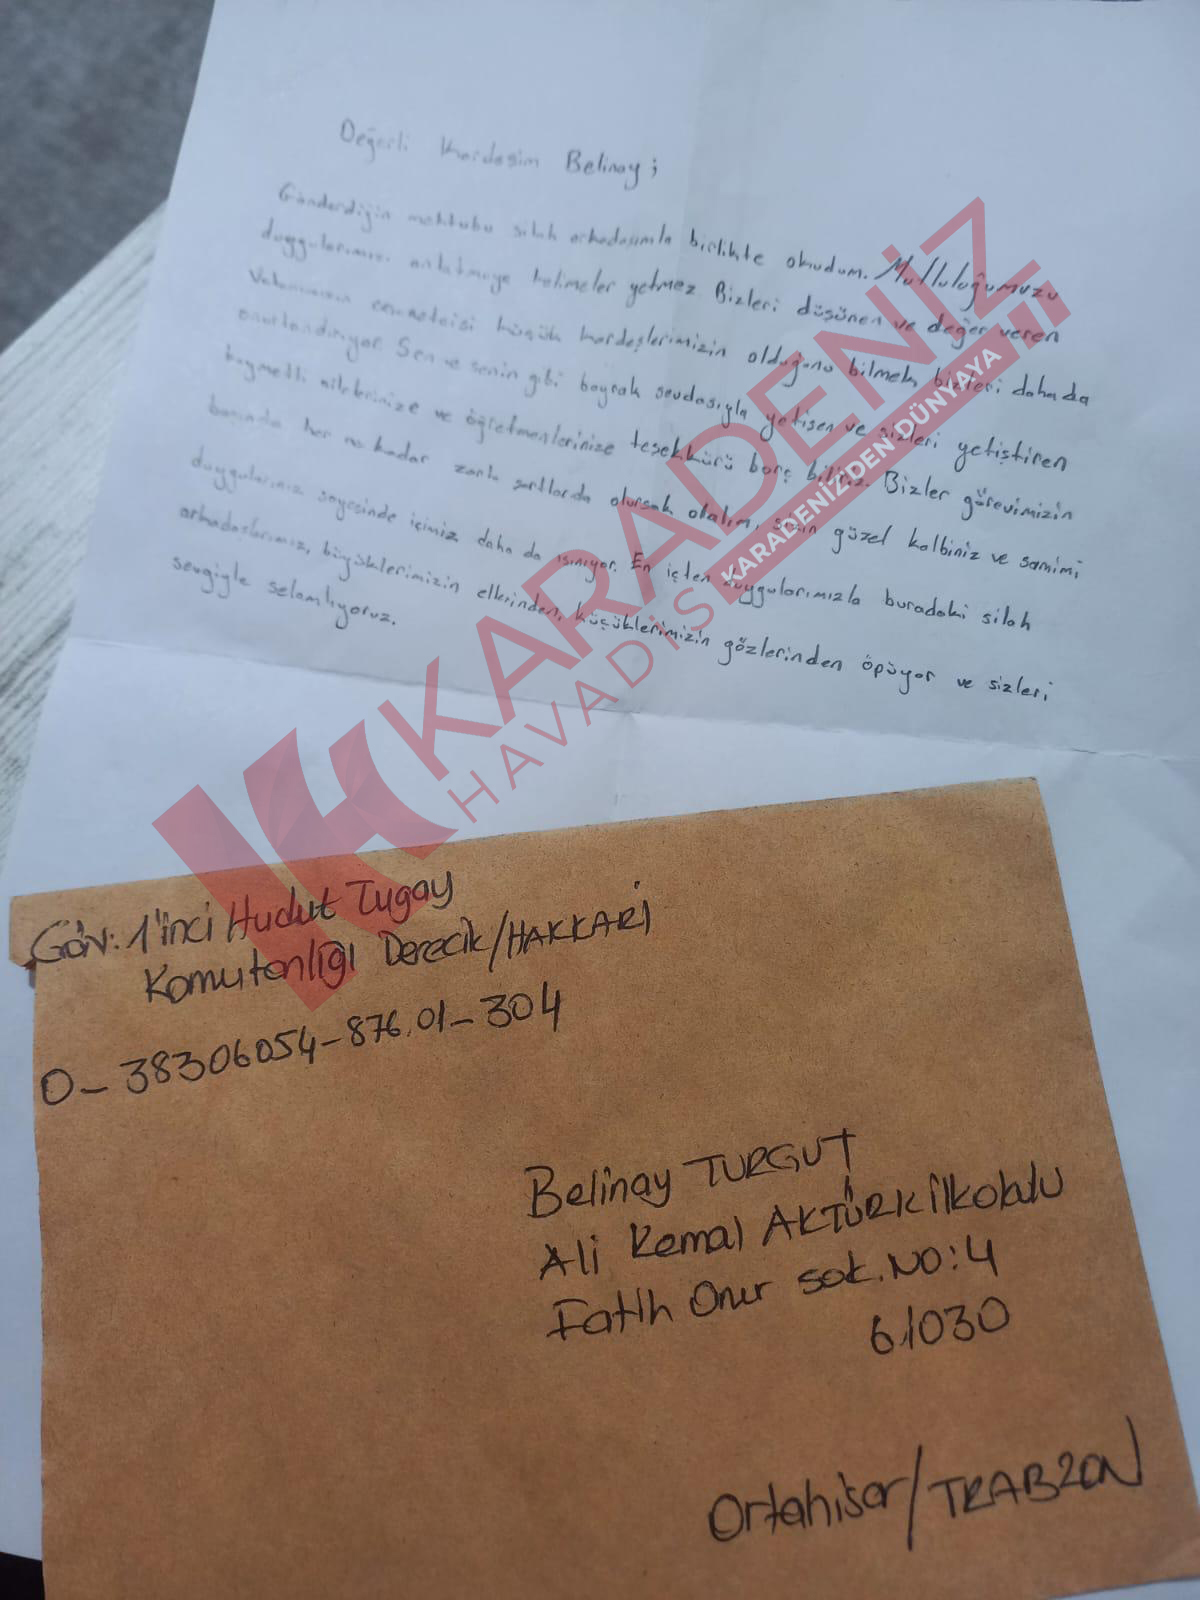 Değerli Kardeşim Belinay;
Gönderdiğin mektubu silah arkadaşımla birlikte okudum. Mutluluğumuzu
duygularımızı anlatmaya kelimeler yetmez. Bizleri düşünen ve değer veren
Vatanımızın küçük kardeşlerimizin olduğunu bilmek, bizleri daha da
onurlandırıyor. Sen ve senin gibi bayrak sevdasıyla yetişen ve sizleri yetiştiren
kıymetli ailelerinize ve öğretmenlerinize teşekkürü borç biliriz. Bizler görevimizin
başında her ne kadar zorlu şartlarda olursak olalım, sizin güzel kalbiniz ve samimi
duygularınız sayesinde içimiz daha da ısınıyor. En içten duygularımızla buradaki silah
arkadaşlarımız, büyüklerimizin ellerinden, küçüklerimizin gözlerinden öpüyor ve sizleri
sevgiyle selamlıyoruz.
KARADENİZ
HAVADİS
KARADENİZ'DEN DÜNYAYA
Gön: 1'inci Hudut Tugay
Komutanlığı Derecik/HAKKARİ
0-38306054-876.01-304
Belinay TURGUT
Ali Kemal AKTÜRK İlkokulu
Fatih Onur sok. NO:4
61030
Ortahisar/TRABZON